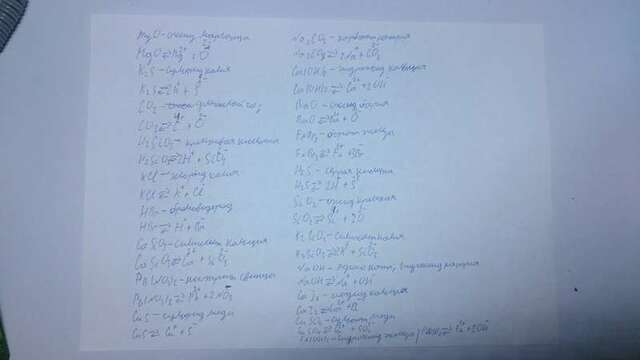 MgO - оксид магния
MgO ⇄ Mg²⁺ + O²⁻
K₂S - сульфид калия
K₂S ⇄ 2K⁺ + S²⁻
CO₂ -
CO₂ ⇄ C⁴⁺ + O²⁻
H₂SiO₃ - кремниевая кислота
H₂SiO₃ ⇄ 2H⁺ + SiO₃²⁻
KCl - хлорид калия
KCl ⇄ K⁺ + Cl⁻
HBr - бромоводород
HBr ⇄ H⁺ + Br⁻
CaSiO₃ - силикат кальция
CaSiO₃ ⇄ Ca²⁺ + SiO₃²⁻
Pb(NO₃)₂ - свинца
Pb(NO₃)₂ ⇄ Pb²⁺ + 2NO₃⁻
CuS - сульфид меди
CuS ⇄ Cu²⁺ + S²⁻
Na₂CO₃ - карбонат натрия
Na₂CO₃ ⇄ 2Na⁺ + CO₃²⁻
Ca(OH)₂ - гидроксид кальция
Ca(OH)₂ ⇄ Ca²⁺ + 2OH⁻
BaO - оксид бария
BaO ⇄ Ba²⁺ + O²⁻
FeBr₂ - железа
FeBr₂ ⇄
H₂S - кислота
H₂S ⇄ 2H⁺ + S²⁻
SiO₂ - оксид кремния
SiO₂ ⇄ Si⁴⁺ + 2O²⁻
K₂SiO₃ - силикат калия
K₂SiO₃ ⇄ 2K⁺ + SiO₃²⁻
NaOH - гидроксид натрия
NaOH ⇄ Na⁺ + OH⁻
CaI₂ - иодид кальция
CuSO₄ - сульфат меди
CuSO₄ ⇄ Cu²⁺ + SO₄²⁻
гидроксид железа